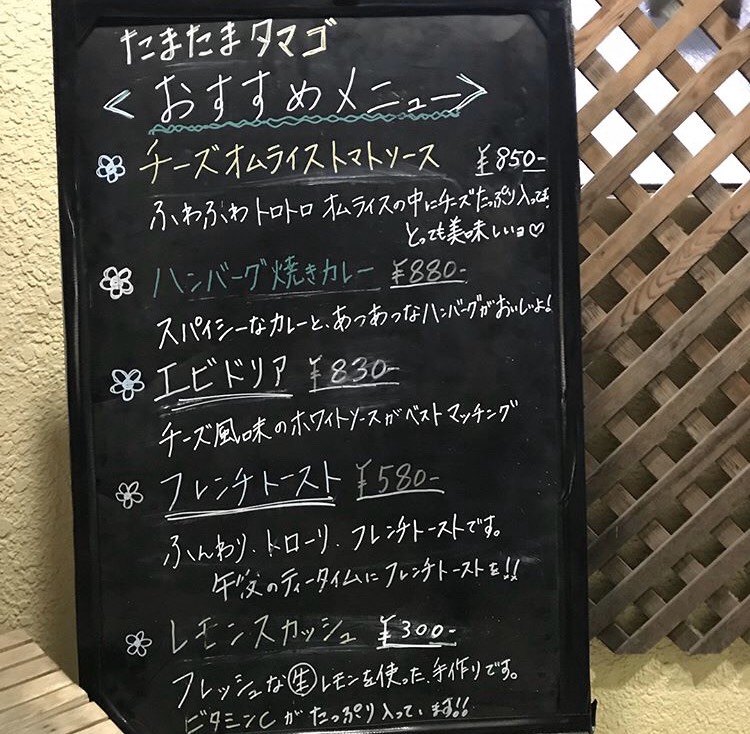 たまたまタマゴ
<おすすめメニュー>
チーズオムライストマトソース ¥850-
ふわふわトロトロ オムライスの中にチーズたっぷり入ってます
とっても美味しいヨ♡
ハンバーグ焼きカレー ¥880-
スパイシーなカレーと、あつあつなハンバーグがおいしいよ!
エビドリア ¥830-
チーズ風味のホワイトソースがベストマッチング
フレンチトースト ¥580-
ふんわり、トローリ、フレンチトーストです。
午後のティータイムにフレンチトーストを!!
レモンスカッシュ ¥300-
フレッシュな㊤レモンを使った、手作りです。
ビタミンCがたっぷり入っています!!